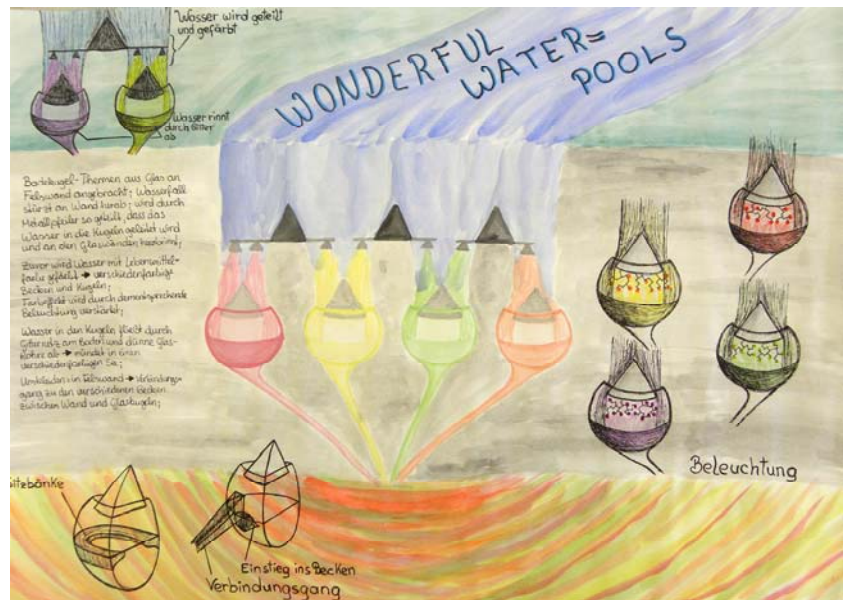 Wasser wird geteilt
und gefärbt
WONDERFUL
WATER=
POOLS
Wasser rinnt
durch Gitter
ab
Badekugel-Thermen aus Glas an
Felswand angebracht; Wasserfall
stürzt an Wand herab; wird durch
Metallpfeiler so geteilt, dass das
Wasser in die Kugeln geleitet wird
und an den Glaswänden herabrinnt;
Zuvor wird Wasser mit Lebensmittel-
farbe gefärbt → verschiedenfarbige
Becken und Kugeln;
Farbeffekt wird durch dementsprechende
Beleuchtung verstärkt;
Wasser in den Kugeln fließt durch
Gitternetz am Boden und dünne Glas-
rohre ab → mündet in einen
verschiedenfarbigen See;
Umkleiden in Felswand → Verbindungs-
gang zu den verschiedenen Becken
zwischen Wand und Glaskugeln;
Beleuchtung
Sitzbänke
Einstieg ins Becken
Verbindungsgang